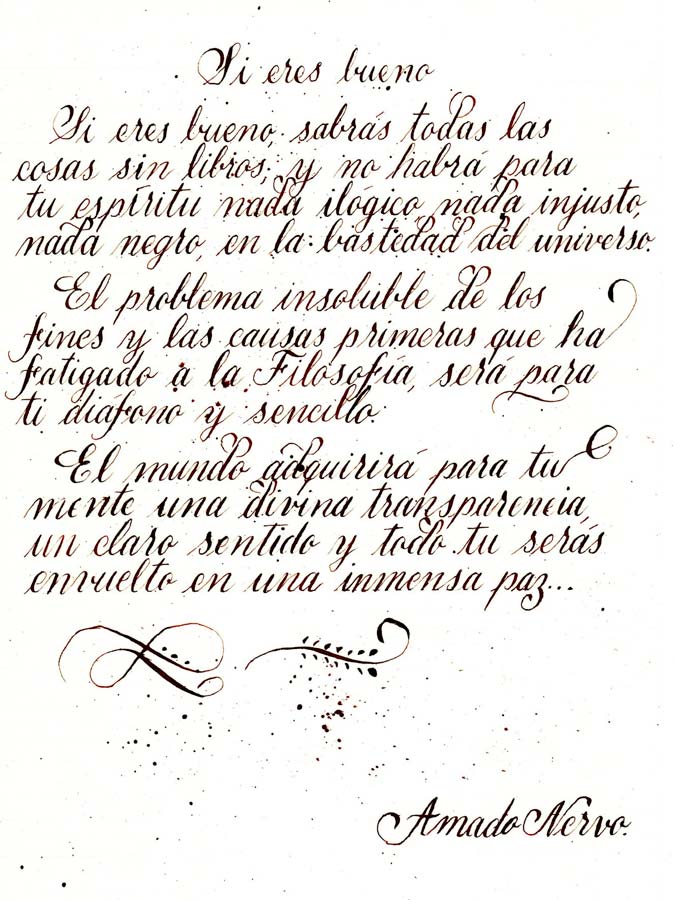 Si eres bueno
Si eres bueno, sabrás todas las
cosas sin libros; y no habrá para
tu espíritu nada ilógico, nada injusto,
nada negro, en la bastedad del universo.
El problema insoluble de los
fines y las causas primeras que ha
fatigado a la Filosofía, será para
ti diáfono y sencillo.
El mundo adquirirá para tu
mente una divina transparencia,
un claro sentido y todo tu serás
envuelto en una inmensa paz...
Amado Nervo.